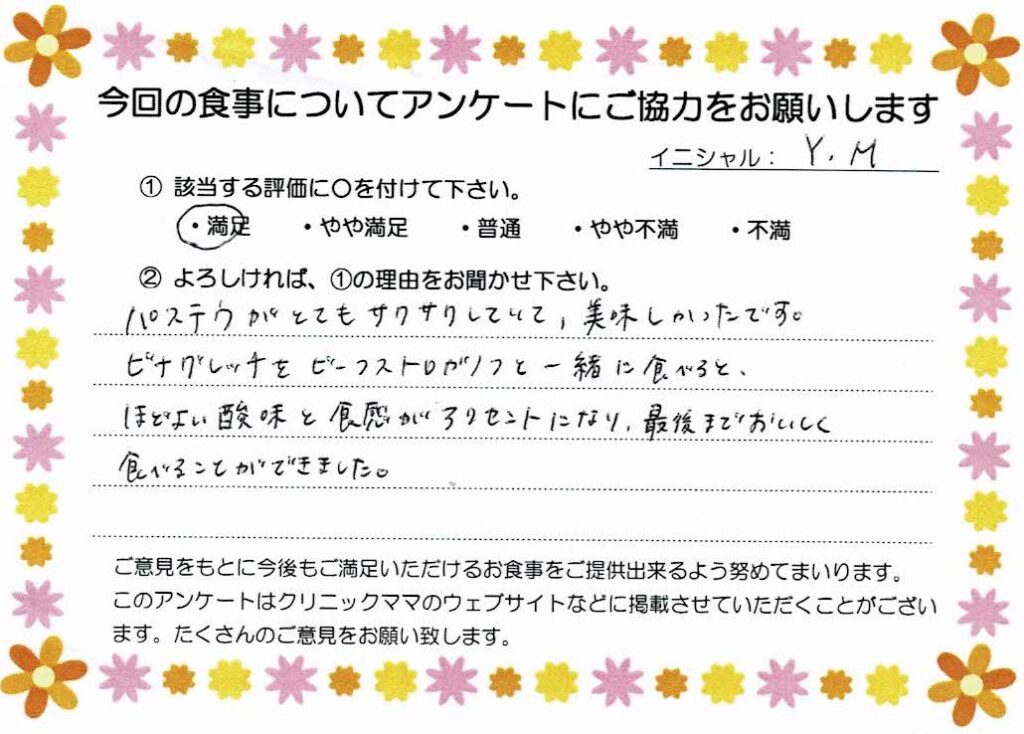 今回の食事についてアンケートにご協力をお願いします
イニシャル： Y.M
① 該当する評価に〇を付けて下さい。
・満足 ・やや満足 ・普通 ・やや不満 ・不満
② よろしければ、①の理由をお聞かせ下さい。
パステウがとてもサクサクしていて、美味しかったです。
ビナグレッチをビーフストロガノフと一緒に食べると、
ほどよい酸味と食感がアクセントになり、最後までおいしく
食べることができました。
ご意見をもとに今後もご満足いただけるお食事をご提供出来るよう努めてまいります。
このアンケートはクリニックママのウェブサイトなどに掲載させていただくことがござい
ます。たくさんのご意見をお願い致します。